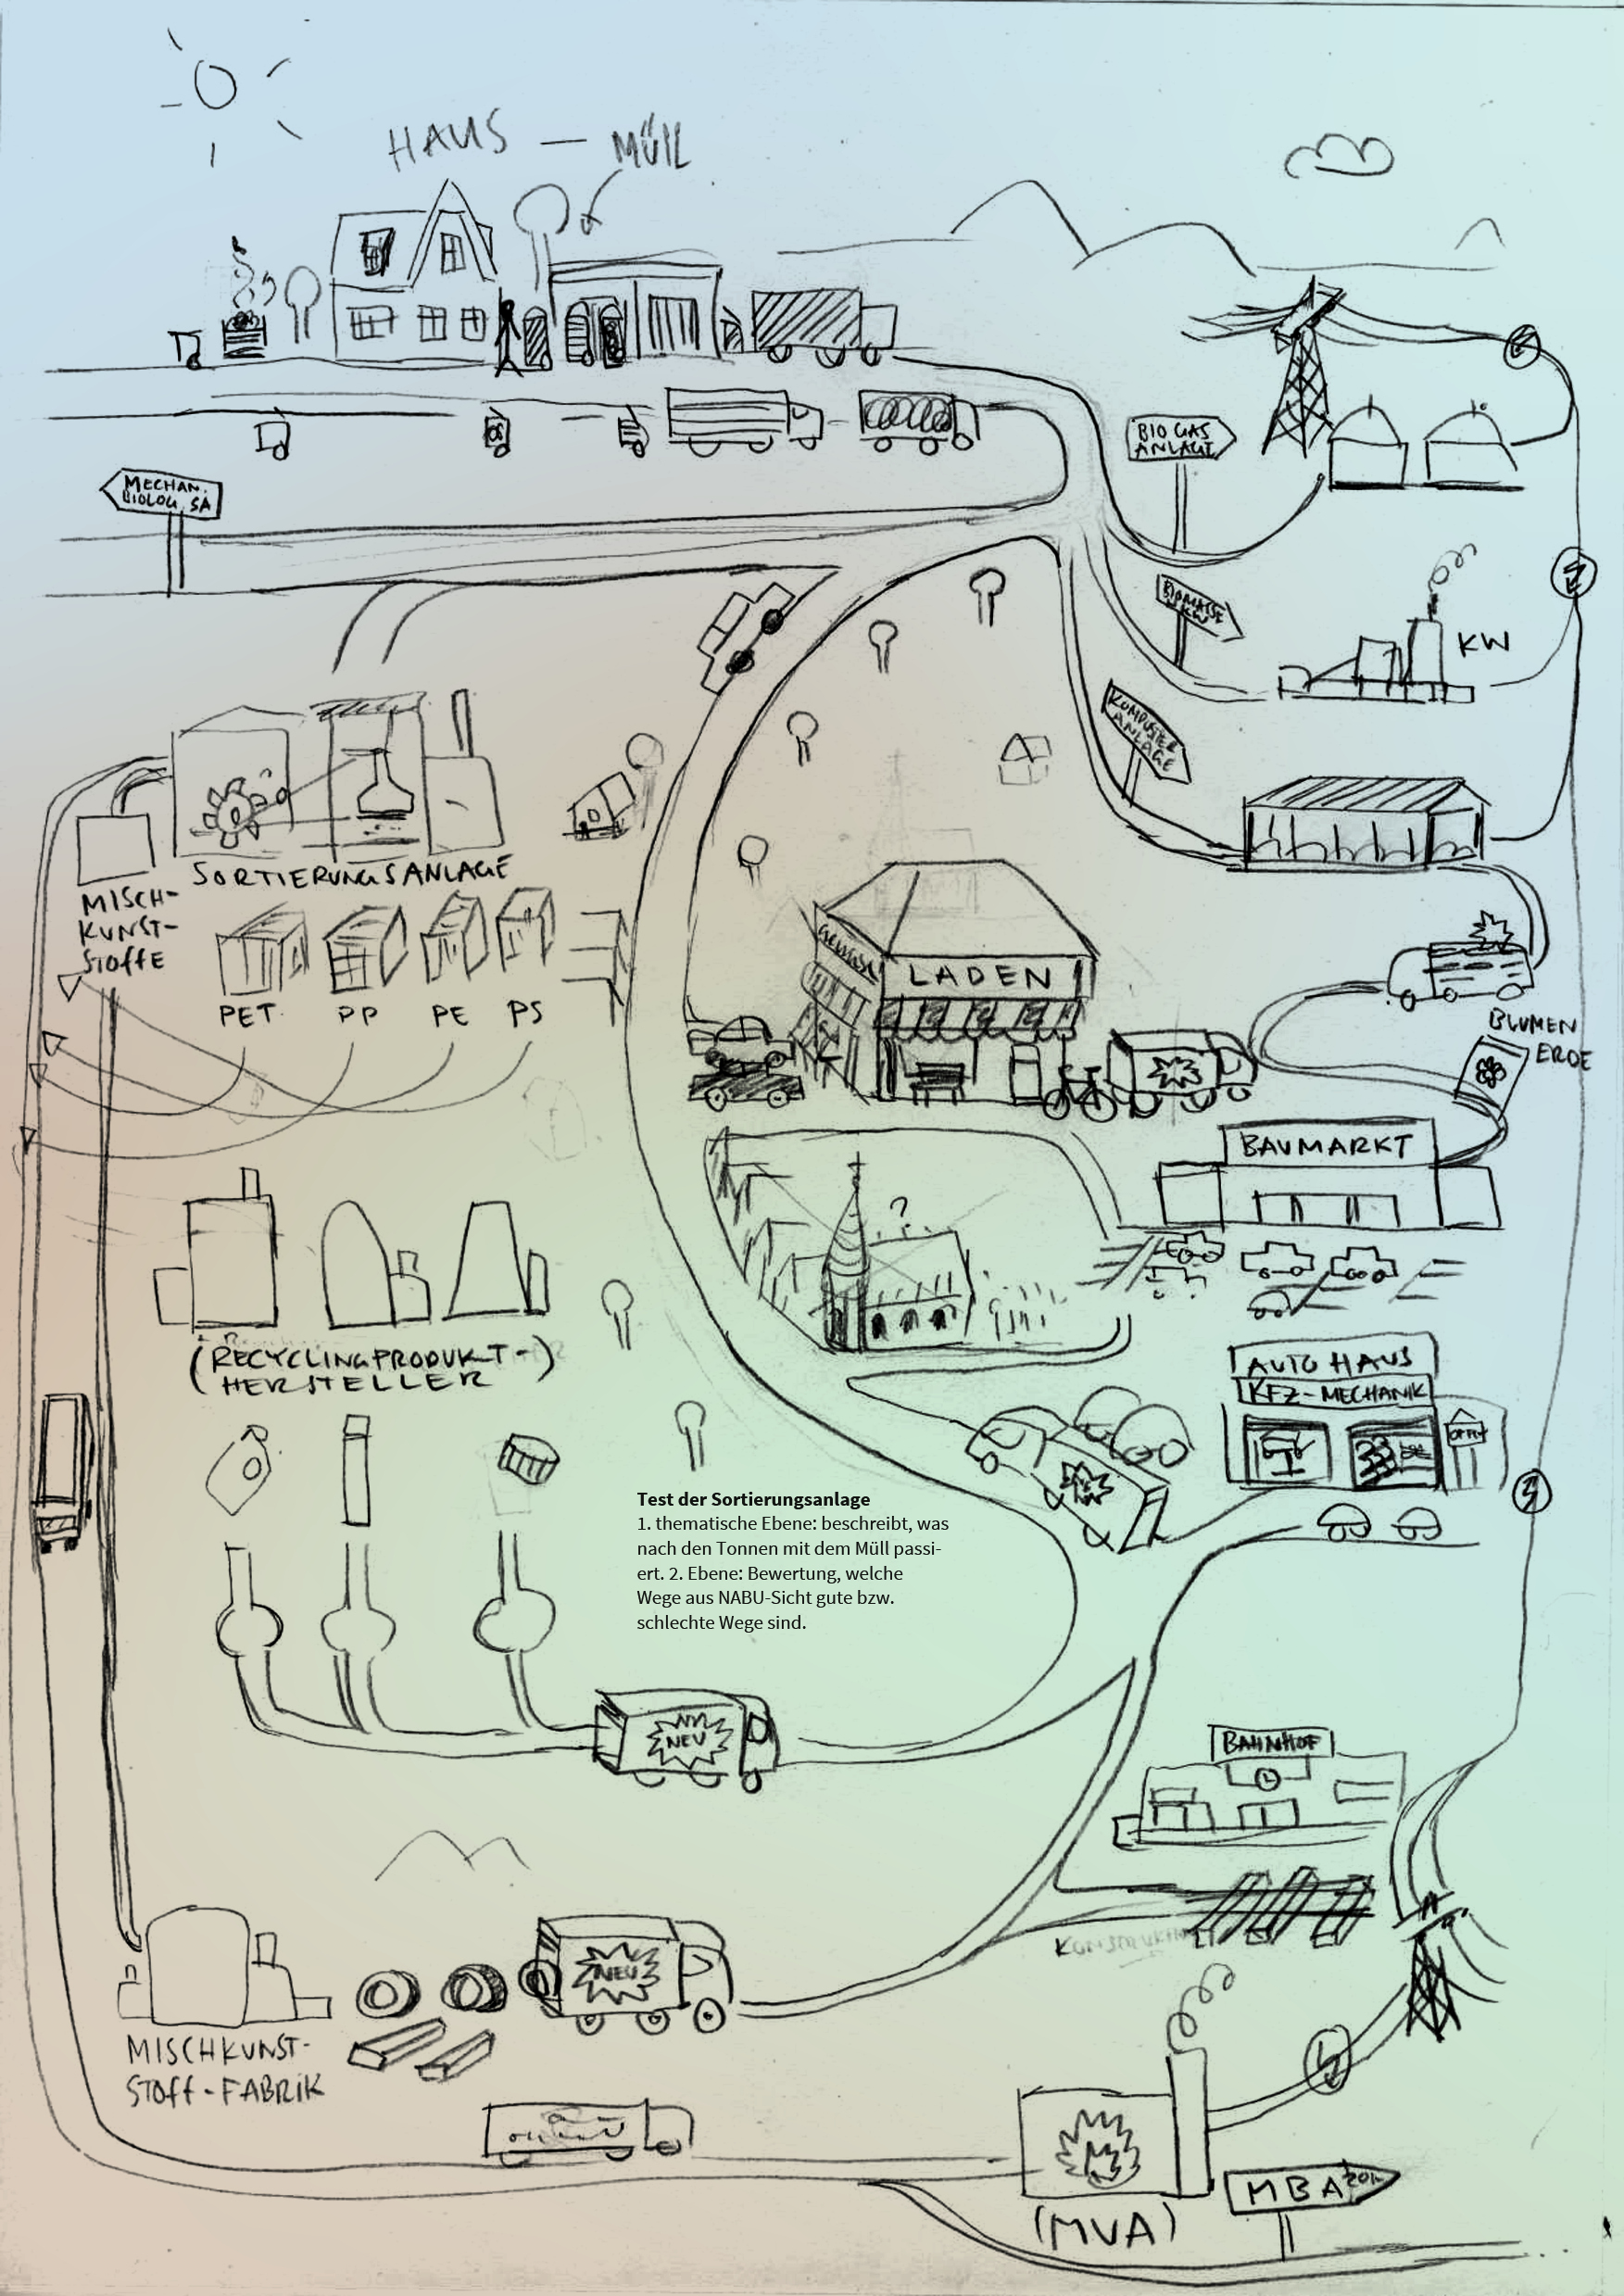 HAUS — MÜLL
BIO GAS
ANLAGE
MECHAN.
BIOLOG. SA
BIOMASSE
KW
KW
KOMPOSTIER
ANLAGE
SORTIERUNGSANLAGE
MISCH-
KUNST-
STOFFE
PET PP PE PS
GEMÜSE
LADEN
BLUMEN
ERDE
BAUMARKT
?
(RECYCLINGPRODUKT-)
HERSTELLER
AUTO HAUS
KFZ-MECHANIK
OFFEN
NEU
Test der Sortierungsanlage
1. thematische Ebene: beschreibt, was
nach den Tonnen mit dem Müll passi-
ert. 2. Ebene: Bewertung, welche
Wege aus NABU-Sicht gute bzw.
schlechte Wege sind.
NEU
BAHNHOF
NEU
MISCHKUNST-
STOFF-FABRIK
(MVA)
MBA